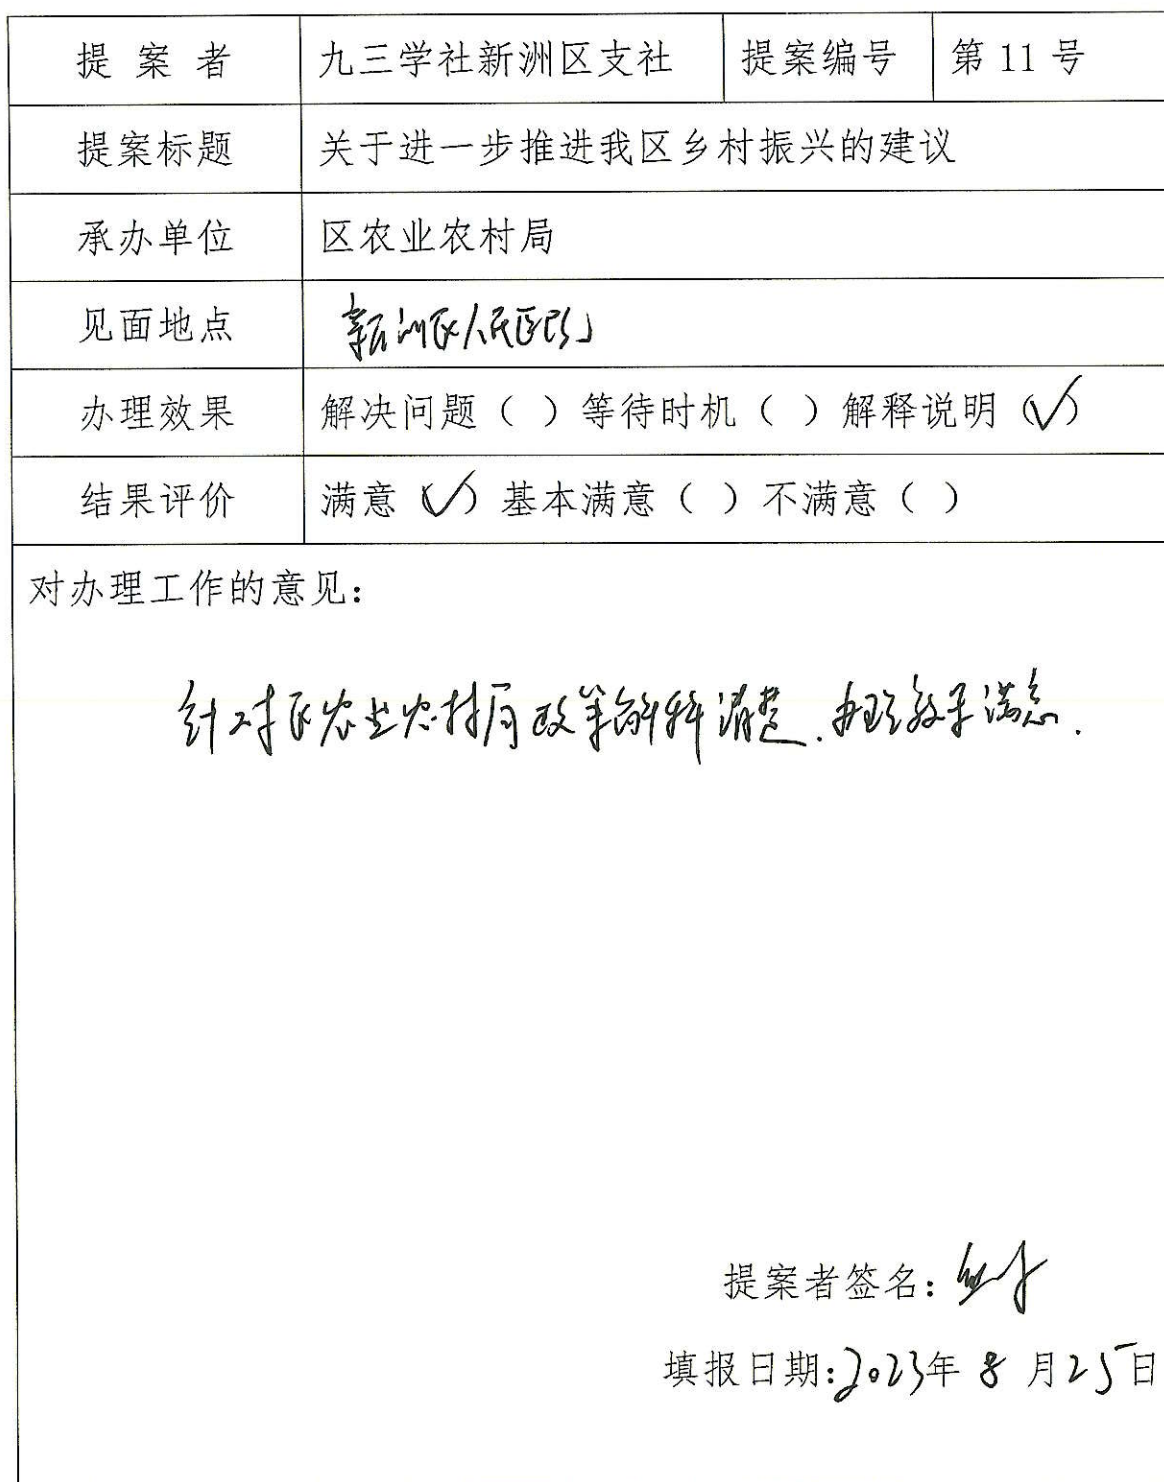 提案者 九三学社新洲区支社 提案编号 第 11 号
提案标题 关于进一步推进我区乡村振兴的建议
承办单位 区农业农村局
见面地点 新洲区人民医院
办理效果 解决问题（ ）等待时机（ ）解释说明（✓）
结果评价 满意（✓）基本满意（ ）不满意（ ）
对办理工作的意见：
针对区农业农村局政策解释清楚．办理效果满意．
提案者签名：
填报日期：2023年 8 月25日